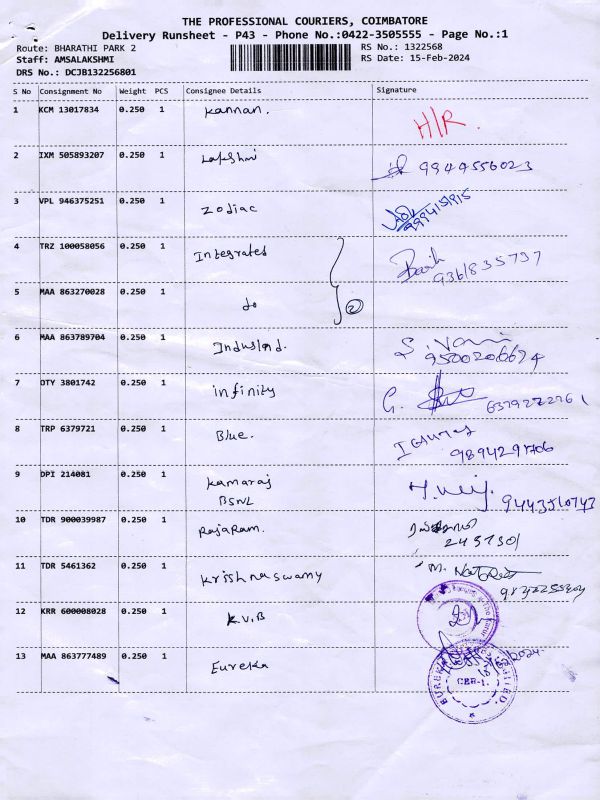 THE PROFESSIONAL COURIERS, COIMBATORE
Delivery Runsheet - P43 - Phone No.:0422-3505555 - Page No.:1
Route: BHARATHI PARK 2 RS No.: 1322568
Staff: AMSALAKSHMI RS Date: 15-Feb-2024
DRS No.: DCJB132256801
S No Consignment No Weight PCS Consignee Details Signature
1 KCM 13017834 0.250 1 Kannan. H/R.
2 IXM 505893207 0.250 1 Lakshmi 9949556023
3 VPL 946375251 0.250 1 Zodiac
4 TRZ 100058056 0.250 1 Integrated 9361835737
5 MAA 863270028 0.250 1 do 2
6 MAA 863789704 0.250 1 IndusInd. S. Vani
9500206674
7 OTY 3801742 0.250 1 infinity G. 6379272761
8 TRP 6379721 0.250 1 Blue.
9 DPI 214081 0.250 1 Kamaraj
BSNL 9443510743
10 TDR 900039987 0.250 1 RajaRam.
2457301
11 TDR 5461362 0.250 1 Krishnaswamy M.
12 KRR 600008028 0.250 1 K.V.B
13 MAA 863777489 0.250 1 Eureka
CBE-1.